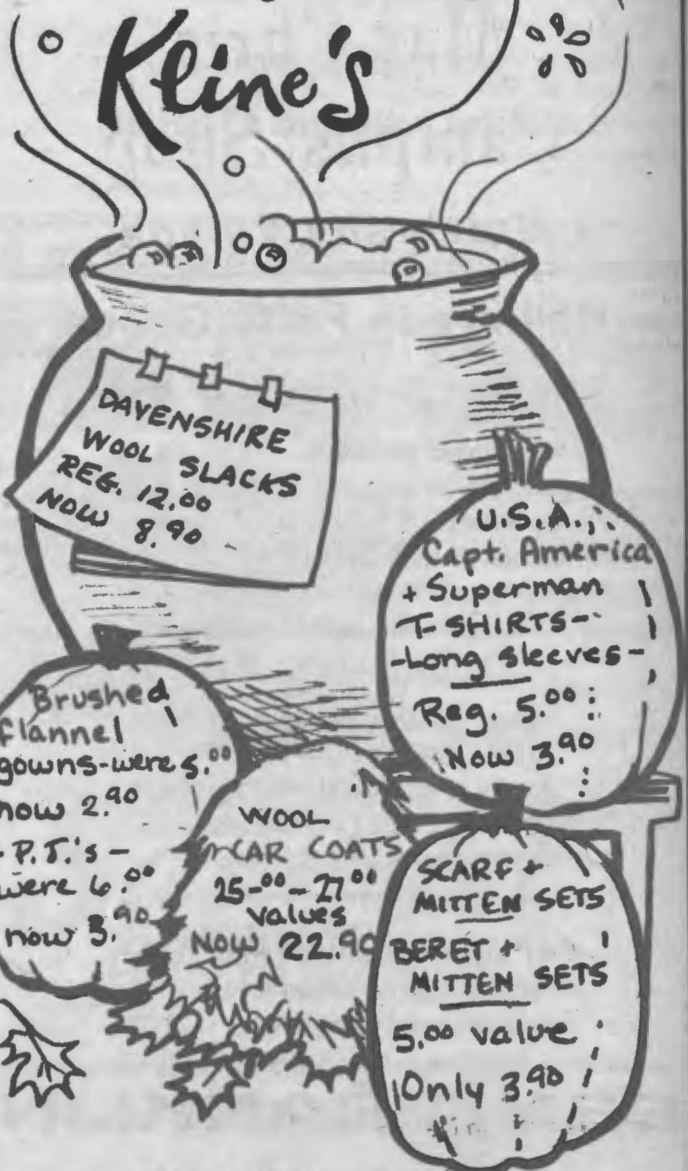 Kline's
DAVENSHIRE
WOOL SLACKS
REG. 12.00
NOW 8.90
U.S.A.,
Capt. America
+ Superman
T-SHIRTS-
-Long sleeves-
Reg. 5.00
Now 3.90
Brushed
flannel
gowns-were 5.00
now 2.90
- P.J.'s -
were 6.00
now 3.90
WOOL
CAR COATS
25-00-27 00
values
NOW 22.90
SCARF +
MITTEN SETS
BERET +
MITTEN SETS
5.00 value
Only 3.90